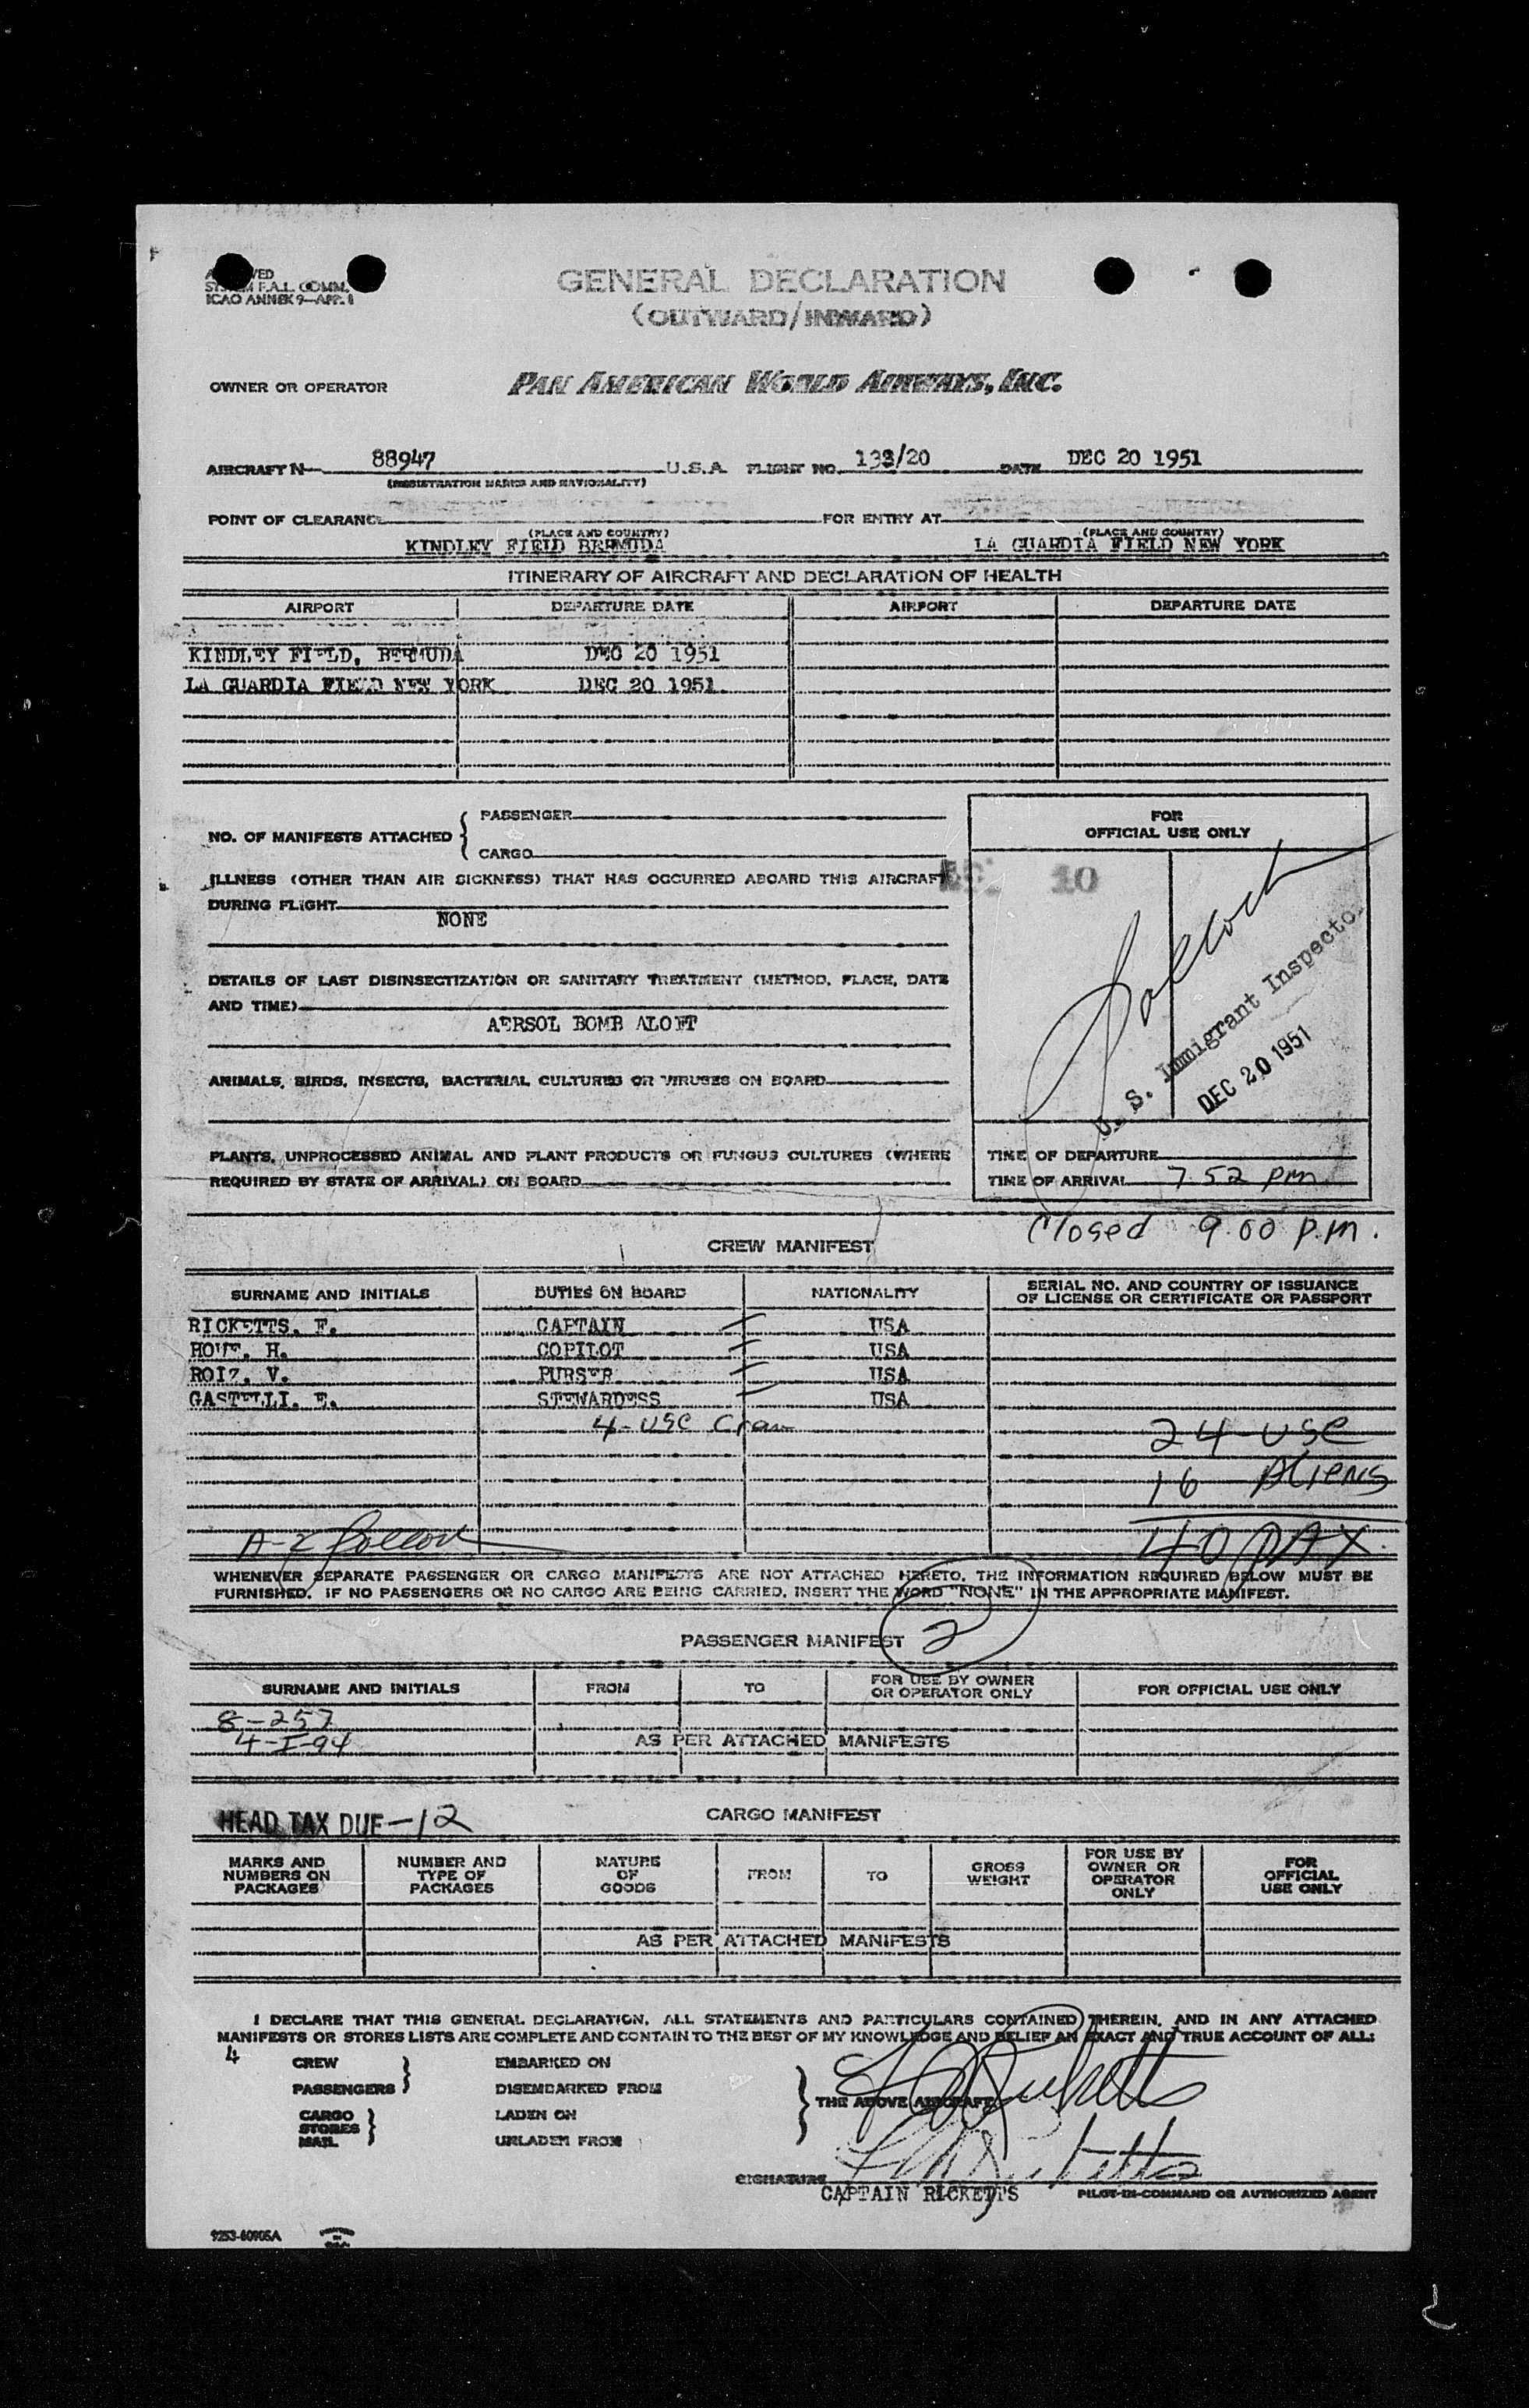 GENERAL DECLARATION
(OUTWARD/INWARD)
SYSTEM F.A.L. COMM.
ICAO ANNEX 9—APP. 1
OWNER OR OPERATOR PAN AMERICAN WORLD AIRWAYS, INC.
AIRCRAFT N— 88947 U.S.A. FLIGHT NO. 133/20 DATE DEC 20 1951
(REGISTRATION MARKS AND NATIONALITY)
POINT OF CLEARANCE FOR ENTRY AT
(PLACE AND COUNTRY) (PLACE AND COUNTRY)
KINDLEY FIELD BERMUDA LA GUARDIA FIELD NEW YORK
ITINERARY OF AIRCRAFT AND DECLARATION OF HEALTH
AIRPORT DEPARTURE DATE AIRPORT DEPARTURE DATE
KINDLEY FIELD, BERMUDA DEC 20 1951
LA GUARDIA FIELD NEW YORK DEC 20 1951
NO. OF MANIFESTS ATTACHED { PASSENGER
CARGO
ILLNESS (OTHER THAN AIR SICKNESS) THAT HAS OCCURRED ABOARD THIS AIRCRAFT
DURING FLIGHT
NONE
DETAILS OF LAST DISINSECTIZATION OR SANITARY TREATMENT (METHOD, PLACE, DATE
AND TIME)
AERSOL BOMB ALOFT
ANIMALS, BIRDS, INSECTS, BACTERIAL CULTURES OR VIRUSES ON BOARD
PLANTS, UNPROCESSED ANIMAL AND PLANT PRODUCTS OR FUNGUS CULTURES (WHERE
REQUIRED BY STATE OF ARRIVAL) ON BOARD
FOR
OFFICIAL USE ONLY
10
U. S. Immigrant Inspector
DEC 20 1951
TIME OF DEPARTURE
TIME OF ARRIVAL 7 52 pm
Closed 9.00 P.M.
CREW MANIFEST
SURNAME AND INITIALS DUTIES ON BOARD NATIONALITY SERIAL NO. AND COUNTRY OF ISSUANCE
OF LICENSE OR CERTIFICATE OR PASSPORT
RICKETTS, F. CAPTAIN USA
HOWE, H. COPILOT USA
ROIZ, V. PURSER USA
GASTELLI, E. STEWARDESS USA
4-USC Crew
24 USC
16 Aliens
40 PAX
WHENEVER SEPARATE PASSENGER OR CARGO MANIFESTS ARE NOT ATTACHED HERETO, THE INFORMATION REQUIRED BELOW MUST BE
FURNISHED. IF NO PASSENGERS OR NO CARGO ARE BEING CARRIED, INSERT THE WORD "NONE" IN THE APPROPRIATE MANIFEST.
PASSENGER MANIFEST 2
SURNAME AND INITIALS FROM TO FOR USE BY OWNER
OR OPERATOR ONLY FOR OFFICIAL USE ONLY
8-257
4-I-94
AS PER ATTACHED MANIFESTS
HEAD TAX DUE -12
CARGO MANIFEST
MARKS AND
NUMBERS ON
PACKAGES NUMBER AND
TYPE OF
PACKAGES NATURE
OF
GOODS FROM TO GROSS
WEIGHT FOR USE BY
OWNER OR
OPERATOR
ONLY FOR
OFFICIAL
USE ONLY
AS PER ATTACHED MANIFESTS
I DECLARE THAT THIS GENERAL DECLARATION, ALL STATEMENTS AND PARTICULARS CONTAINED THEREIN, AND IN ANY ATTACHED
MANIFESTS OR STORES LISTS ARE COMPLETE AND CONTAIN TO THE BEST OF MY KNOWLEDGE AND BELIEF AN EXACT AND TRUE ACCOUNT OF ALL:
4 CREW EMBARKED ON
PASSENGERS DISEMBARKED FROM
THE ABOVE AIRCRAFT
CARGO LADEN ON
STORES
MAIL UNLADEN FROM
SIGNATURE
CAPTAIN RICKETTS PILOT-IN-COMMAND OR AUTHORIZED AGENT
9253-60906A
2